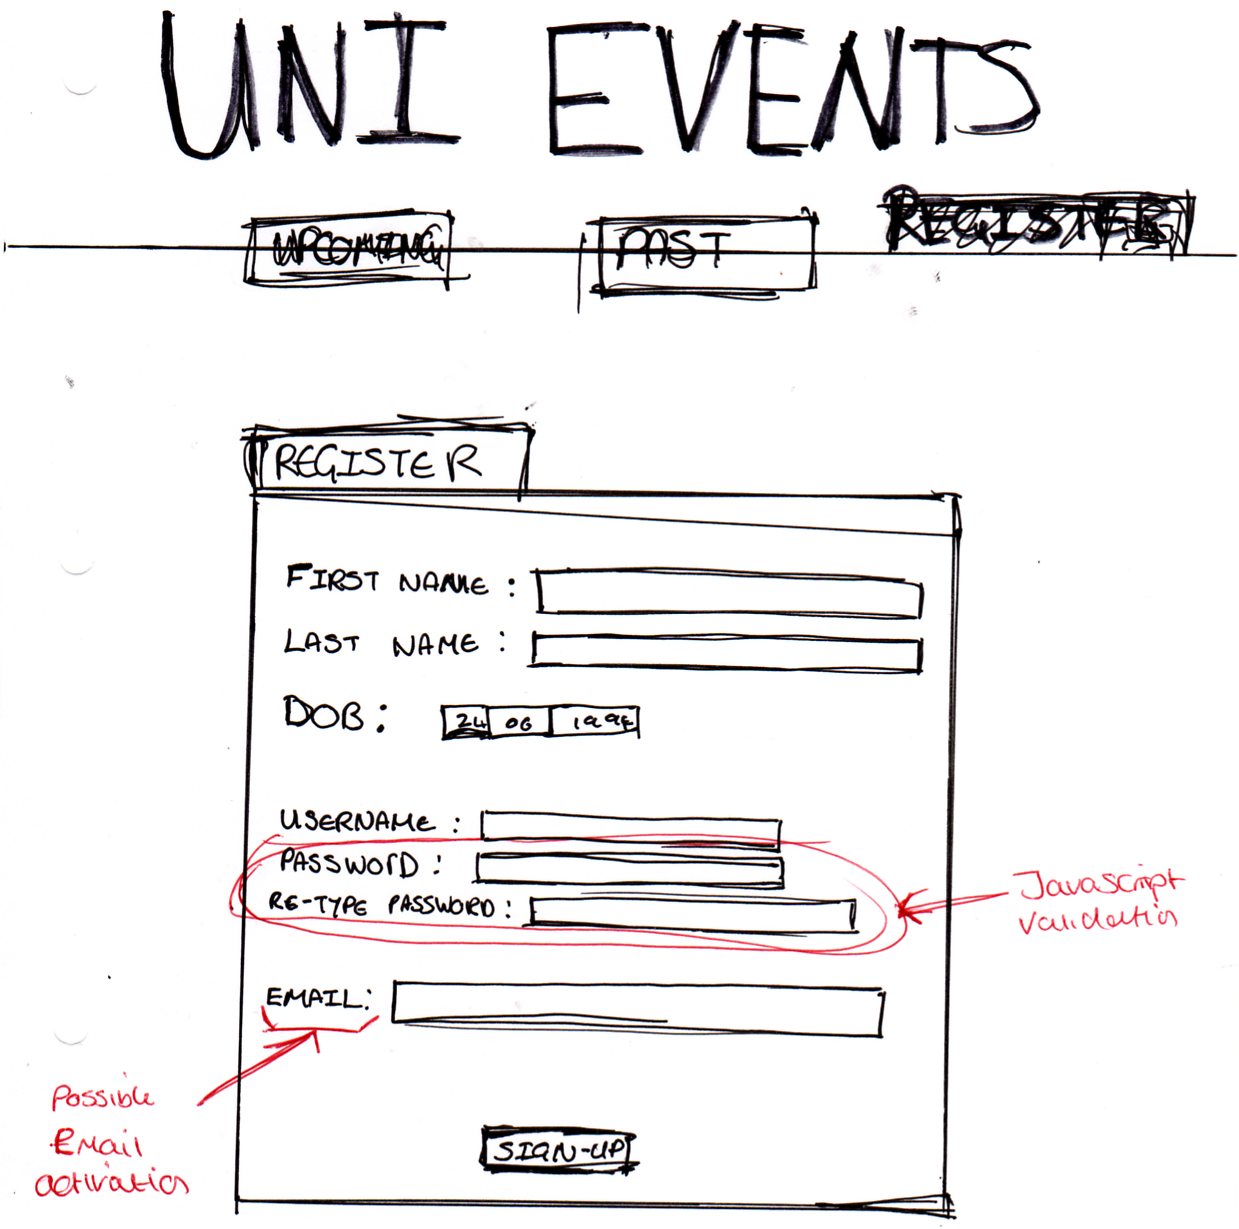 UNI EVENTS
UPCOMING PAST REGISTER
REGISTER
FIRST NAME :
LAST NAME :
DOB : 24 06 1994
USERNAME :
PASSWORD :
RE-TYPE PASSWORD :
Javascript
validation
EMAIL :
Possible
Email
activation
SIGN-UP